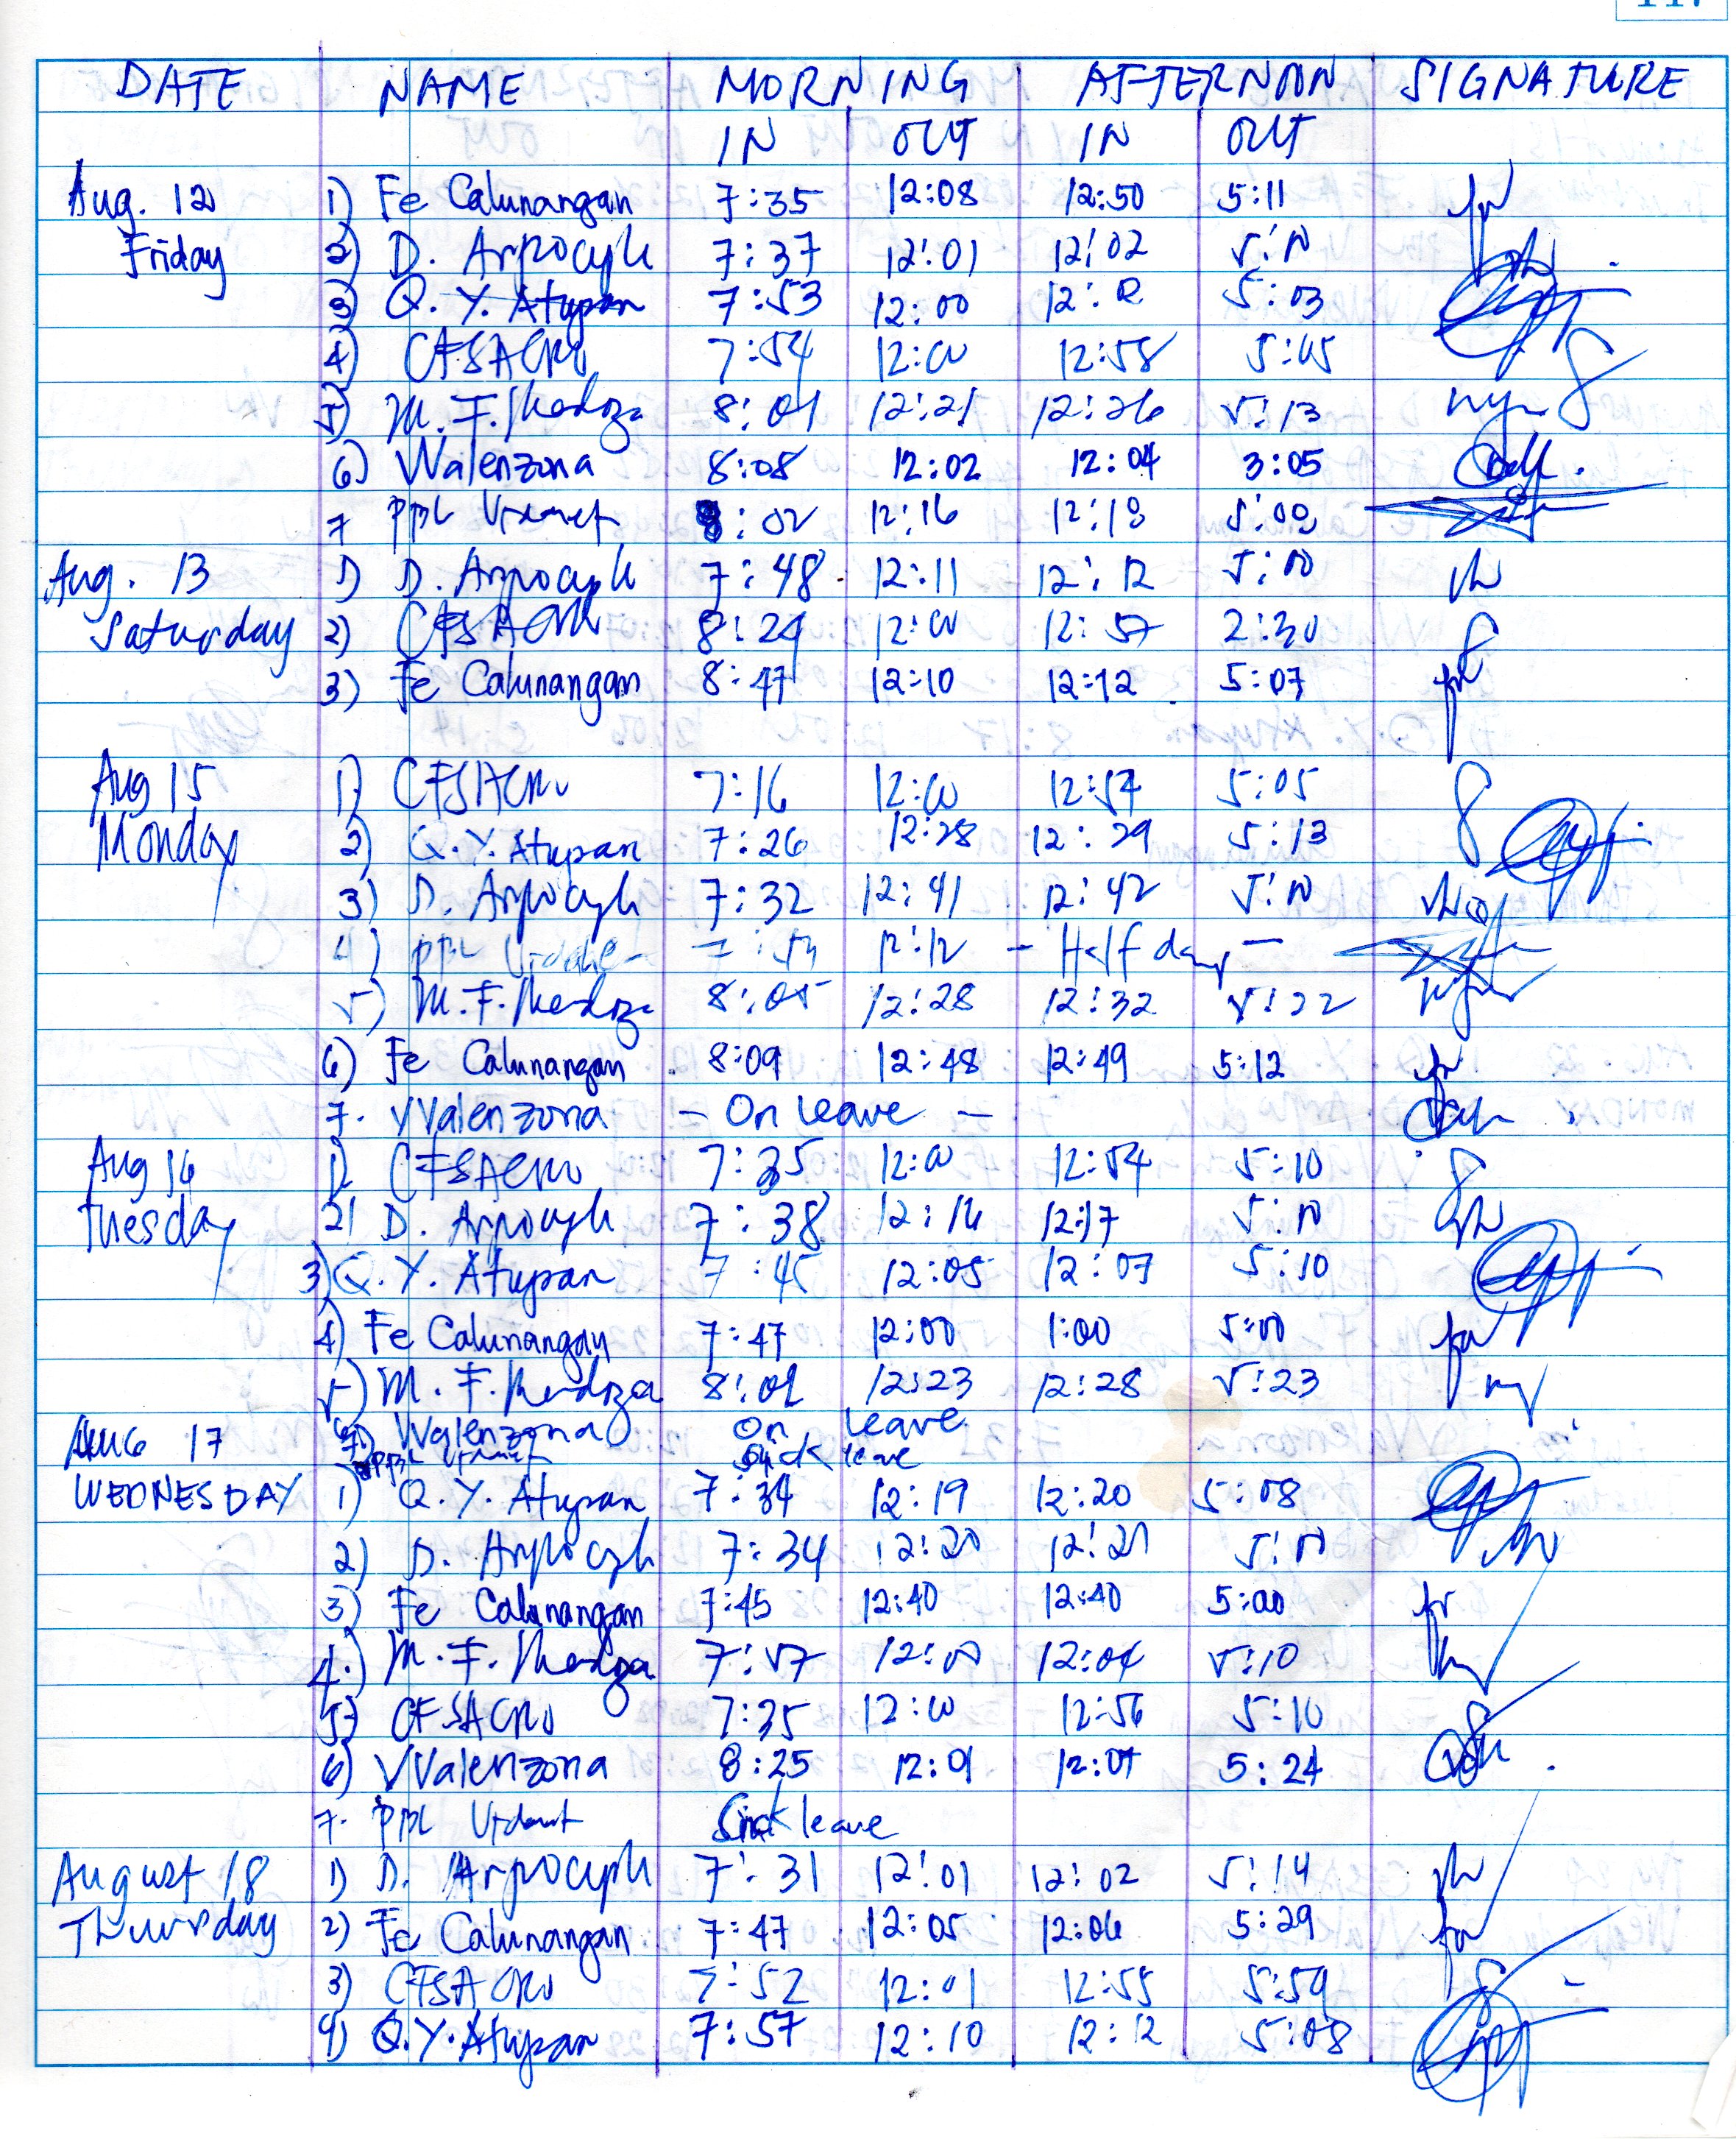 DATE NAME MORNING AFTERNOON SIGNATURE
IN OUT IN OUT
Aug. 12 1) Fe Calunangan 7:35 12:08 12:50 5:11
Friday 2) D. 7:37 12:01 12:02
3) Q. Y. Atupan 7:53 12:00 5:03
4) CFSACRO 7:54 12:00 12:58 5:05
5) M. F. Mendoza 8:01 12:21 12:26 5:13
6) VValenzona 8:08 12:02 12:04 3:05
7 PBL 8:02 12:16 12:18 5:00
Aug. 13 1) D. 7:48 12:11 12:12
Saturday 2) CFSACRO 8:24 12:00 12:57 2:30
3) Fe Calunangan 8:47 12:10 12:12 5:07
Aug 15 1) CFSACRO 7:16 12:00 12:57 5:05
Monday 2) Q. Y. Atupan 7:26 12:28 12:29 5:13
3) D. 7:32 12:41 12:42
4) PBL 12:12 - Half day -
5) M. F. Mendoza 8:05 12:28 12:32 5:22
6) Fe Calunangan 8:09 12:48 12:49 5:12
7. VValenzona - On leave -
Aug 16 1) CFSACRO 7:35 12:00 12:54 5:10
Tuesday 2) D. 7:38 12:16 12:17
3) Q. Y. Atupan 7:45 12:05 12:07 5:10
4) Fe Calunangan 7:47 12:00 1:00 5:00
5) M. F. Mendoza 8:01 12:23 12:28 5:23
6) VValenzona On leave
7) PBL Sick leave
AUG 17
WEDNESDAY 1) Q. Y. Atupan 7:34 12:19 12:20 5:08
2) D. 7:34 12:20 12:21
3) Fe Calunangan 7:45 12:40 12:40 5:00
4.) M. F. Mendoza 7:57 12:00 12:04 5:10
5) CFSACRO 7:35 12:00 12:56 5:10
6) VValenzona 8:25 12:01 12:07 5:24
7. PBL Sick leave
August 18 1) D. 7:31 12:01 12:02 5:14
Thursday 2) Fe Calunangan 7:47 12:05 12:06 5:29
3) CFSACRO 7:52 12:01 12:55 5:59
4) Q. Y. Atupan 7:57 12:10 12:12 5:08